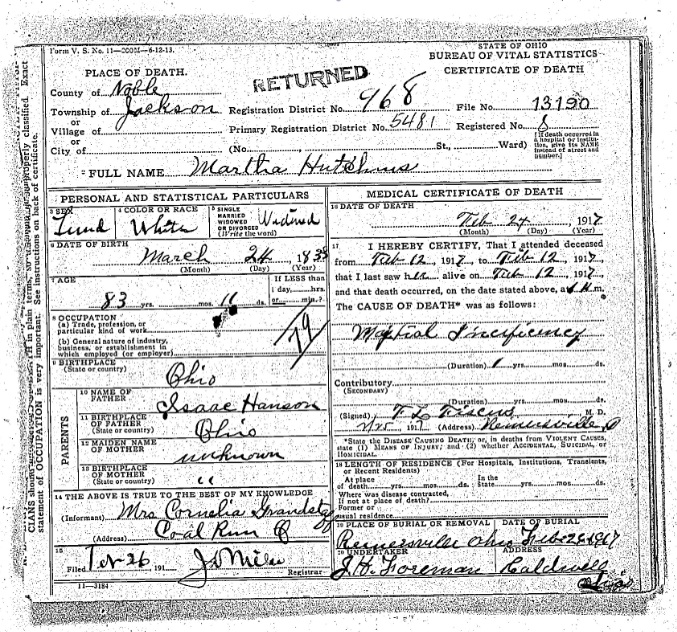 Form V. S. No. 11—200M—6-12-13.
STATE OF OHIO
BUREAU OF VITAL STATISTICS
CERTIFICATE OF DEATH
PLACE OF DEATH.
RETURNED
County of Noble
Township of Jackson Registration District No. 968 File No. 13190
or
Village of Primary Registration District No. 5481 Registered No. 8
or
City of (No. , St., Ward) (If death occurred in a hospital or institution, give its NAME instead of street and number.)
FULL NAME Martha Hutchins
PERSONAL AND STATISTICAL PARTICULARS
3 SEX
4 COLOR OR RACE White
5 SINGLE MARRIED WIDOWED OR DIVORCED (Write the word) Widowed
6 DATE OF BIRTH
March 24 183
(Month) (Day) (Year)
7 AGE
83 yrs. mos. 11 ds.
If LESS than 1 day, hrs. or min.?
8 OCCUPATION
(a) Trade, profession, or particular kind of work
(b) General nature of industry, business, or establishment in which employed (or employer)
79
9 BIRTHPLACE
(State or country) Ohio
PARENTS
10 NAME OF FATHER Isaac Hanson
11 BIRTHPLACE OF FATHER (State or country) Ohio
12 MAIDEN NAME OF MOTHER unknown
13 BIRTHPLACE OF MOTHER (State or country) "
14 THE ABOVE IS TRUE TO THE BEST OF MY KNOWLEDGE
(Informant) Mrs Cornelia
(Address) Coal Run O
15
Filed Feb 26 191 J D Miler Registrar
11—3184
MEDICAL CERTIFICATE OF DEATH
16 DATE OF DEATH
Feb 24, 1917
(Month) (Day) (Year)
17 I HEREBY CERTIFY, That I attended deceased
from Feb 12, 1917, to Feb 12, 1917
that I last saw h alive on Feb 12, 1917,
and that death occurred, on the date stated above, at m.
The CAUSE OF DEATH* was as follows:
(Duration) 1 yrs. mos. ds.
Contributory
(SECONDARY)
(Duration) yrs. mos. ds.
(Signed) F L M. D.
2/25 1917 (Address)
*State the DISEASE CAUSING DEATH, or, in deaths from VIOLENT CAUSES, state (1) MEANS OF INJURY; and (2) whether ACCIDENTAL, SUICIDAL, or HOMICIDAL.
18 LENGTH OF RESIDENCE (For Hospitals, Institutions, Transients, or Recent Residents)
At place of death yrs. mos. ds. In the State yrs. mos. ds.
Where was disease contracted, If not at place of death?
Former or usual residence
19 PLACE OF BURIAL OR REMOVAL DATE OF BURIAL
Ohio Feb 26 1917
20 UNDERTAKER ADDRESS
J. H. Foreman Caldwell Ohio
properly classified. Exact
in plain terms,
See instructions on back of certificate.
statement of OCCUPATION is very important.